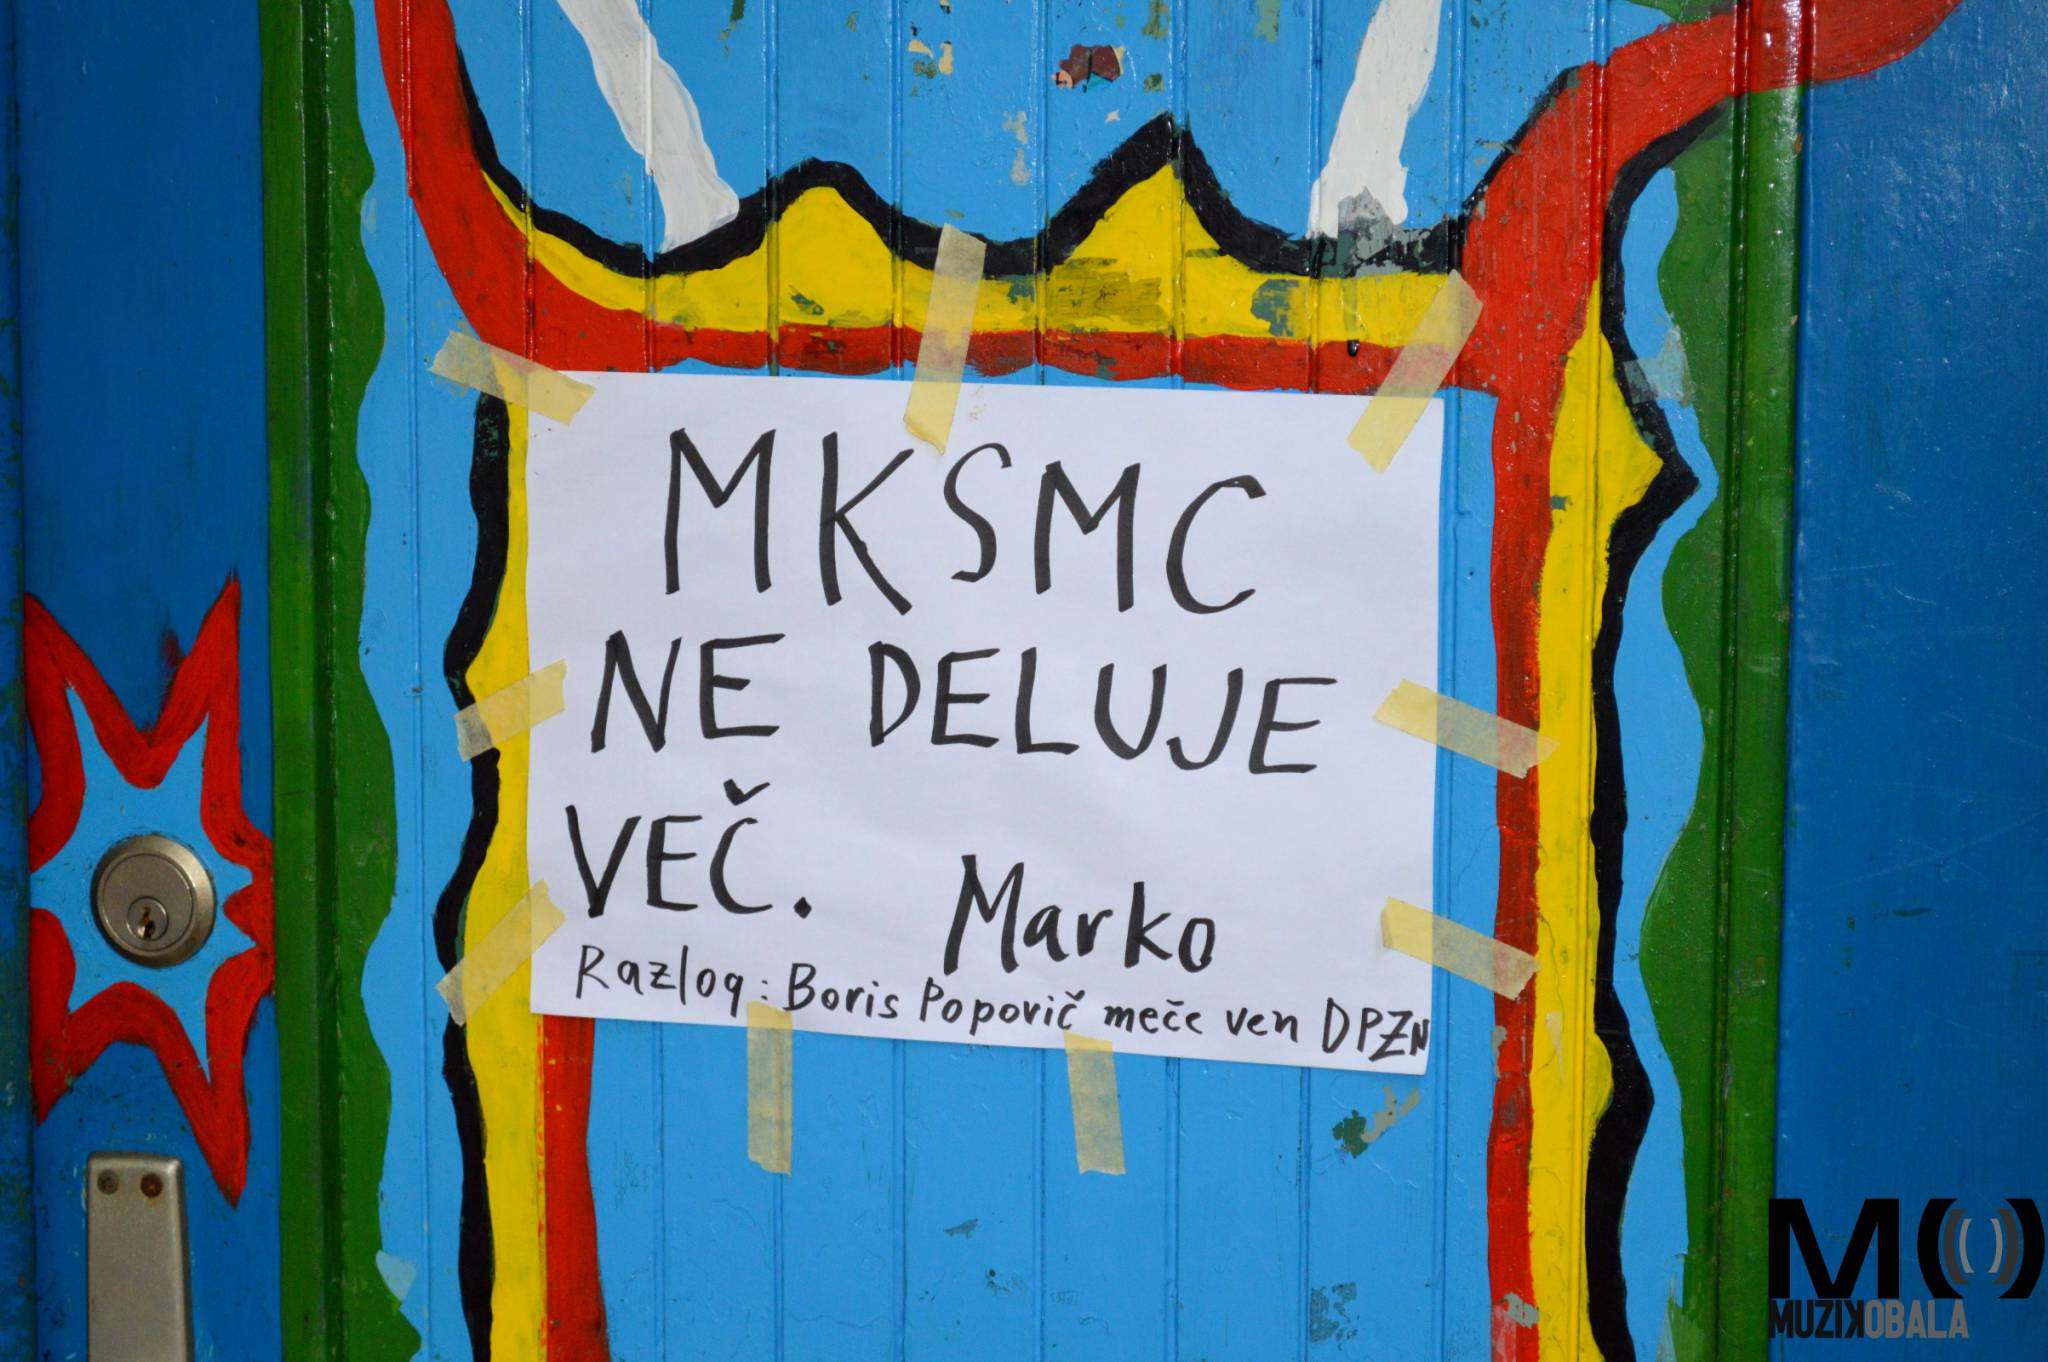 MKSMC
NE DELUJE
VEČ.
Marko
Razlog: Boris Popovič meče ven DPZN
MO
MUZIKOBALA